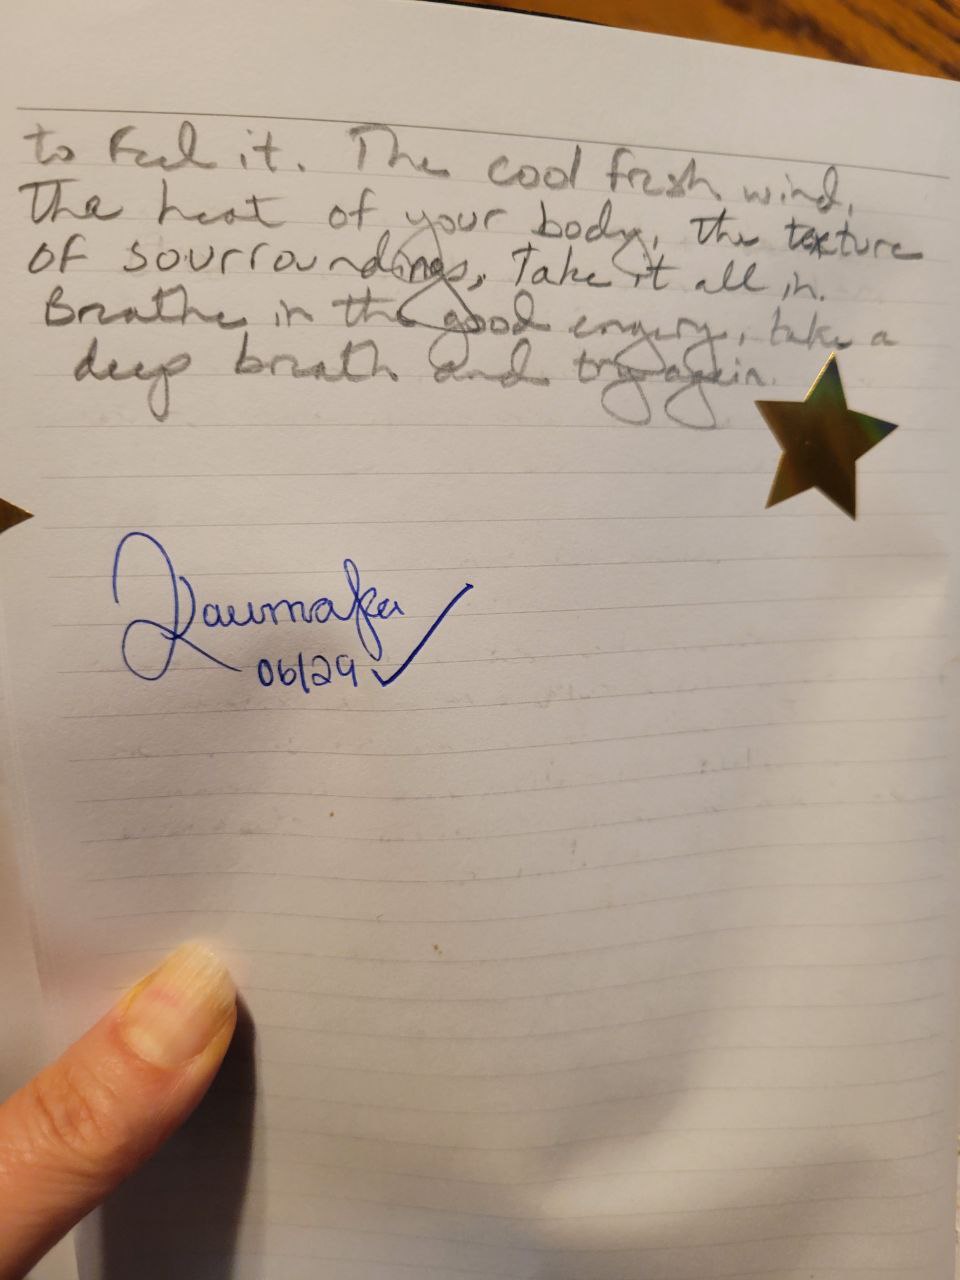 to Feel it. The cool fresh wind,
The heat of your body, the texture
OF sourroundings, Take it all in.
Breathe in the good engery, take a
deep breath and try again.
06/29